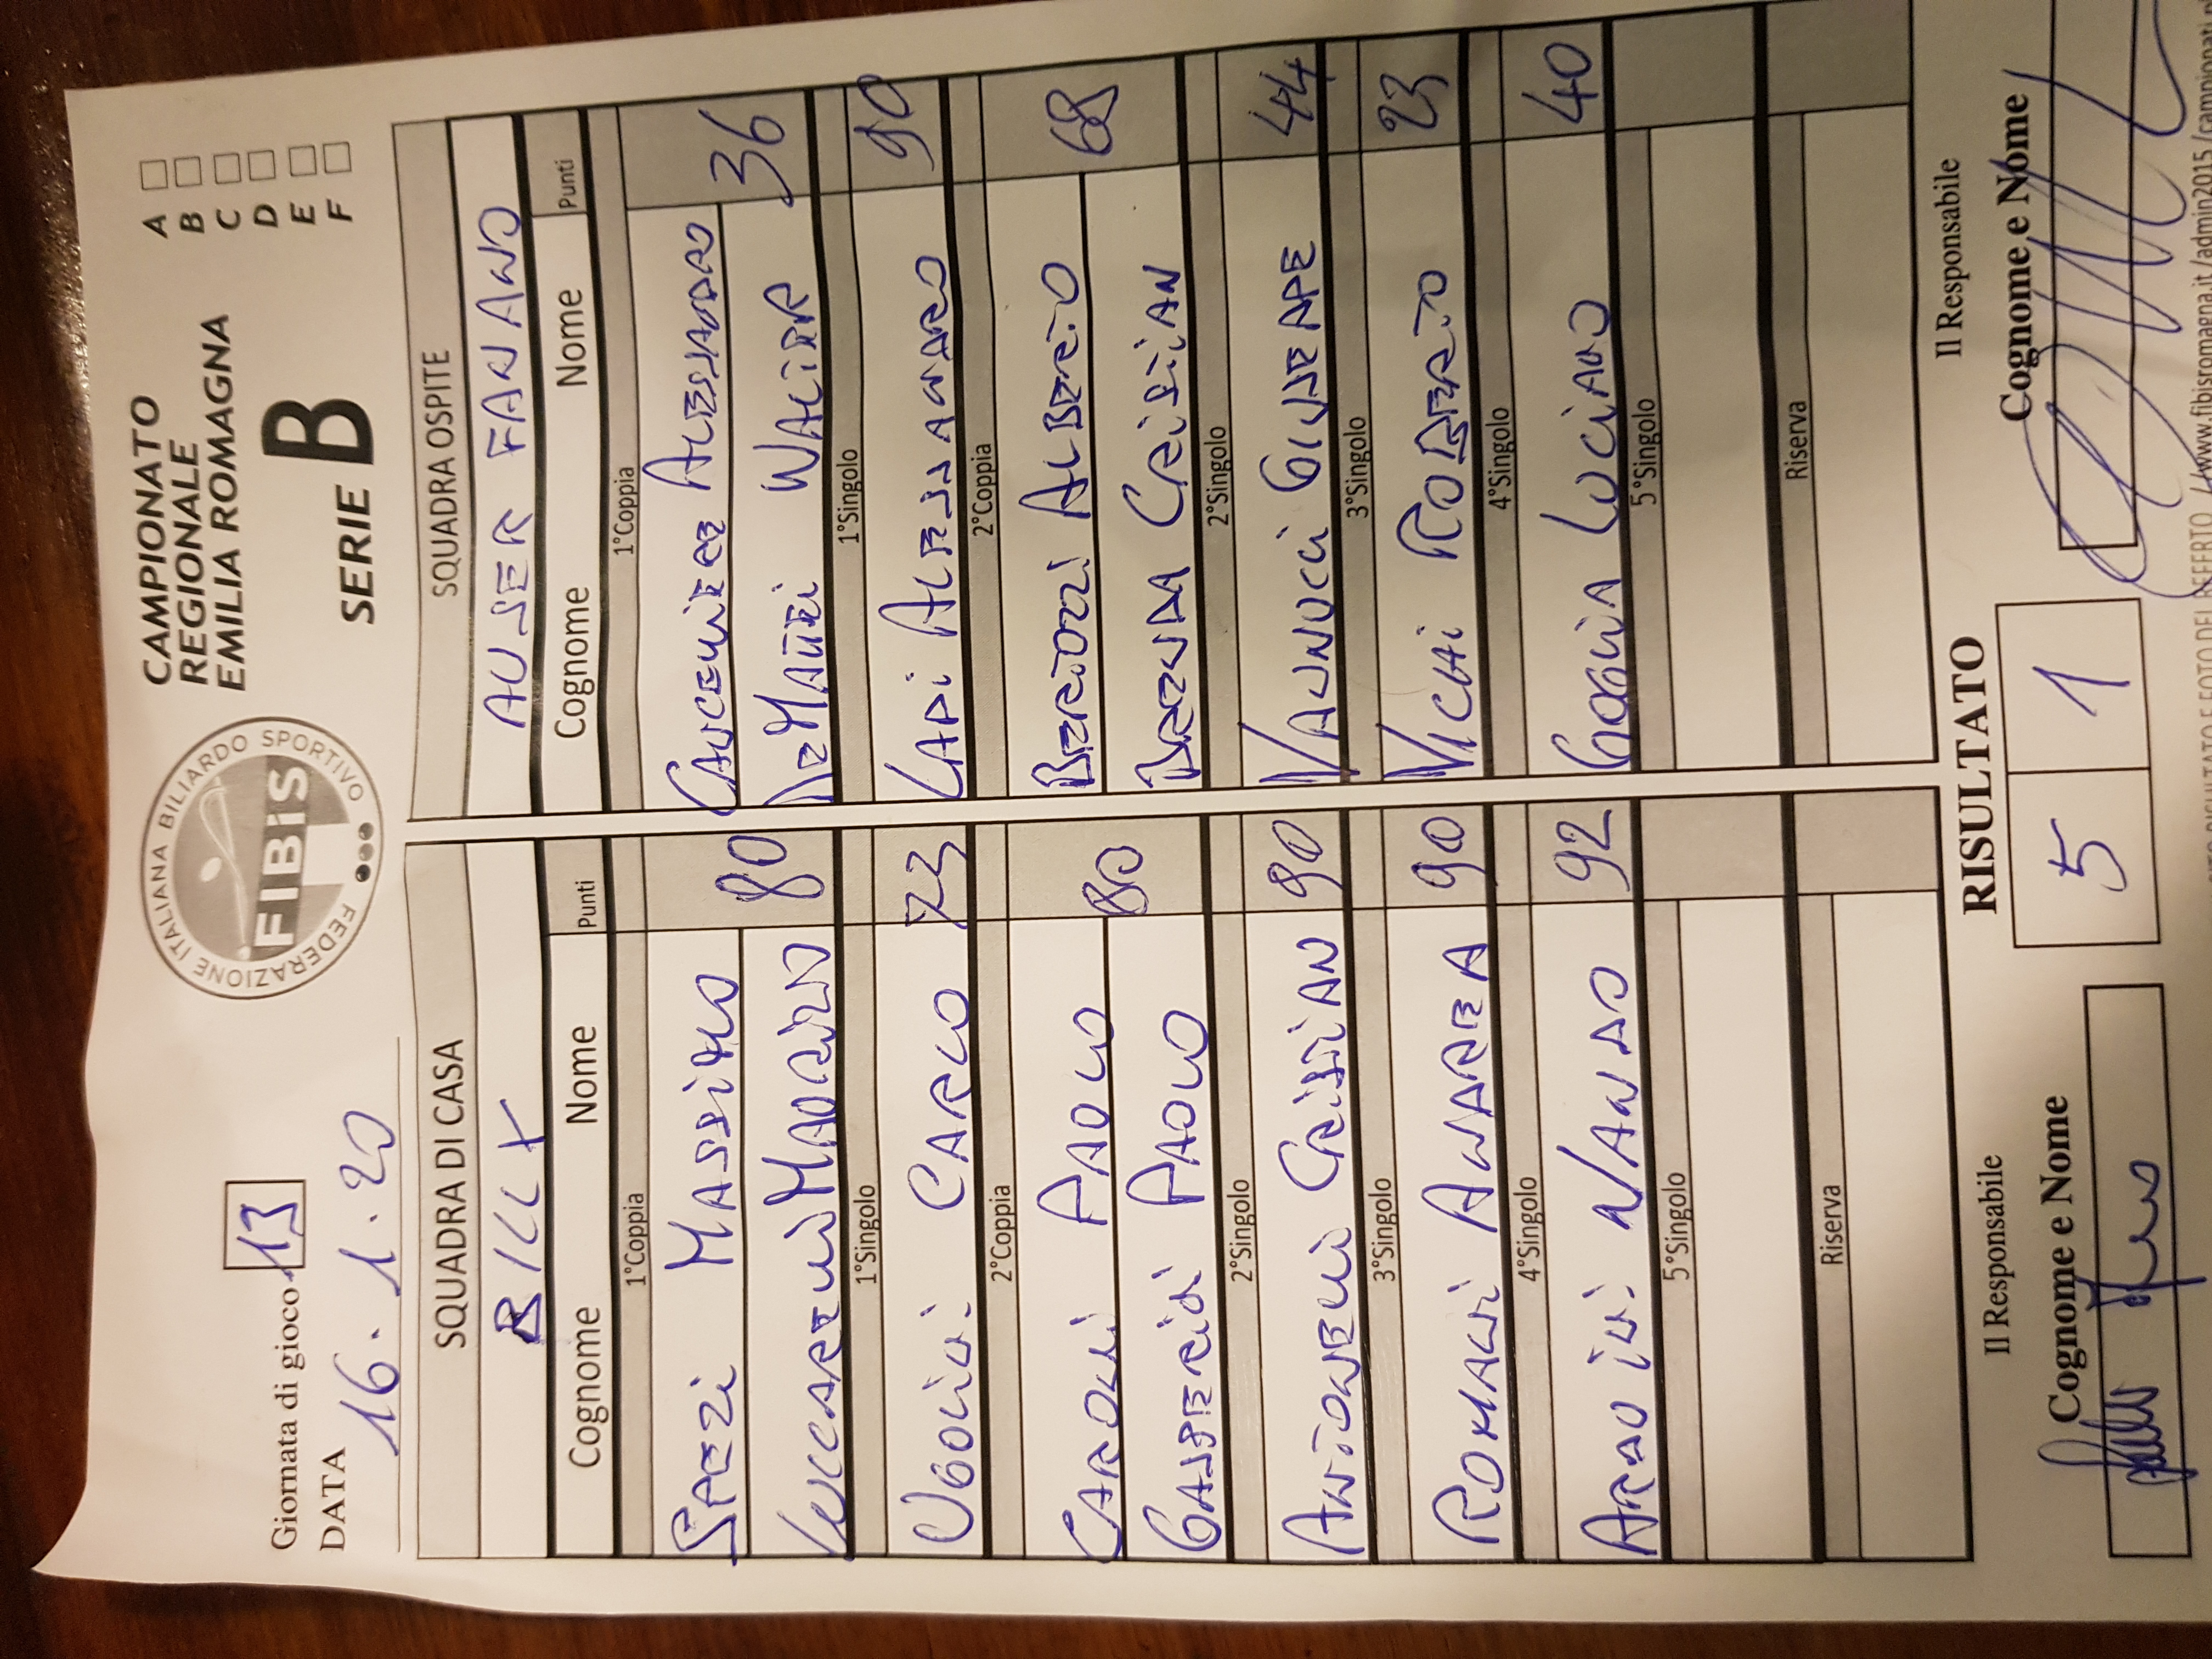 Giornata di gioco 13
DATA 16.1.20
FEDERAZIONE ITALIANA BILIARDO SPORTIVO
FIBiS
CAMPIONATO
REGIONALE
EMILIA ROMAGNA
SERIE B
A
B
C
D
E
F
SQUADRA DI CASA
BILLY
Cognome Nome Punti
1°Coppia
SPEZI MASSIMO
MAURIZIO 80
1°Singolo
UGOLINI CARLO 73
2°Coppia
CAROLI PAOLO
GASPERINI PAOLO 80
2°Singolo
ANTONELLI CRISTIAN 90
3°Singolo
ROMAGNI ANDREA 90
4°Singolo
NANDO 92
5°Singolo
Riserva
SQUADRA OSPITE
AUSER FANANO
Cognome Nome Punti
1°Coppia
ALESSANDRO
DEMATTEI WALTER 36
1°Singolo
LAPI ALESSANDRO 90
2°Coppia
BERTOZZI ALBERTO
CRISTIAN 68
2°Singolo
VANNUCCI GIUSEPPE 44
3°Singolo
VICHI ROBERTO 23
4°Singolo
LUCIANO 40
5°Singolo
Riserva
Il Responsabile
Cognome e Nome
RISULTATO
5 1
Il Responsabile
Cognome e Nome
RISULTATO E FOTO DEL REFERTO //www.fibisromagna.it/admin2015/campionati